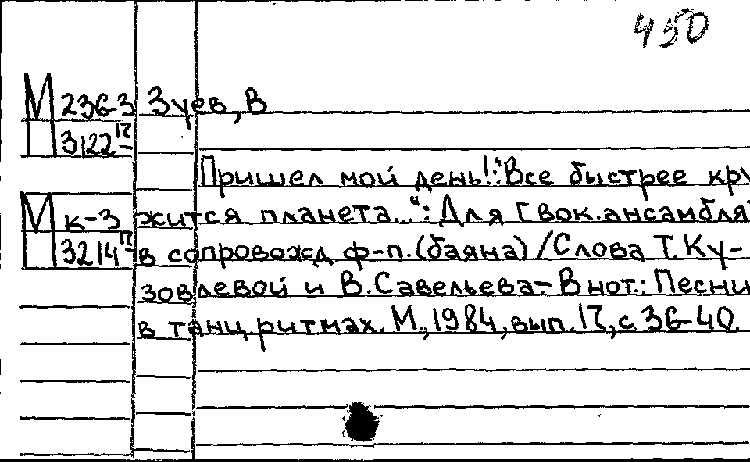 450
М 236-3 Зуев, В
3122 17
Пришел мой день!:"Все быстрее кру
М к-3 жится планета...": Для [вок.ансамбля]
3214 17 в сопровожд ф-п. (баяна) / Слова Т. Ку-
зовлевой и В. Савельева - В нот.: Песни
в танц. ритмах. М., 1984, вып. 17, с 36-40.